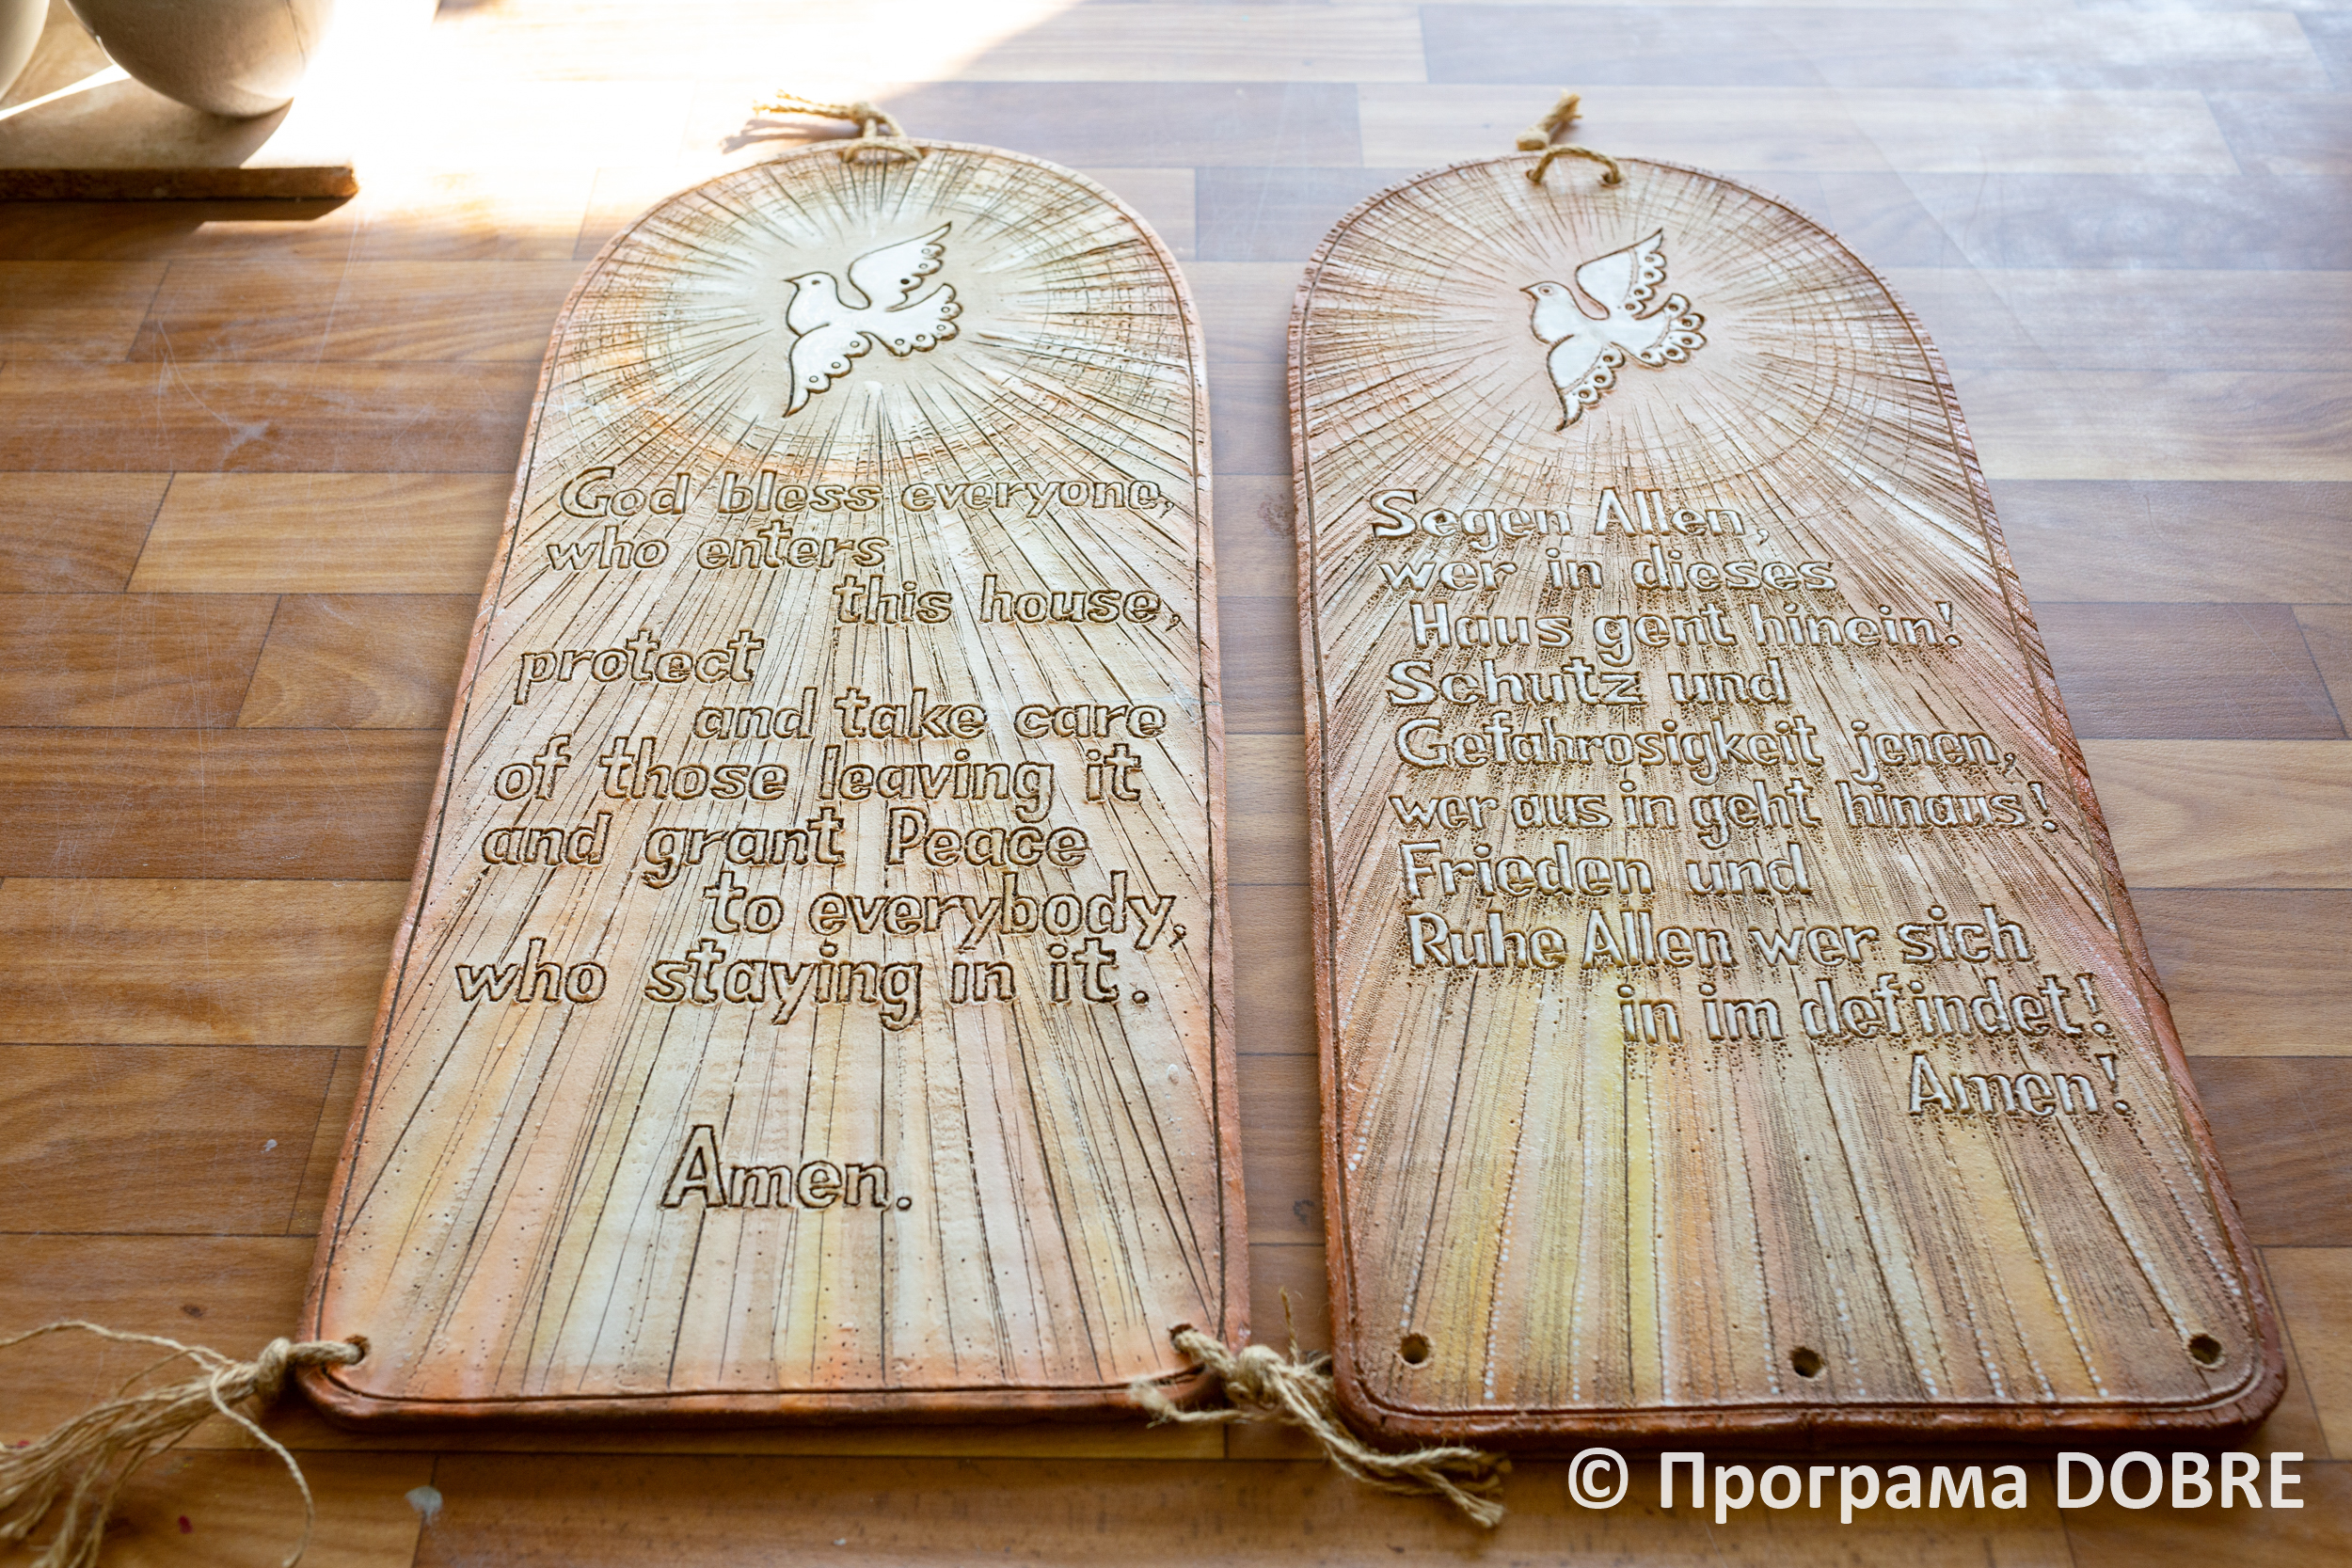 God bless everyone,
who enters
this house,
protect
and take care
of those leaving it
and grant Peace
to everybody,
who staying in it.
Amen.
Segen Allen,
wer in dieses
Haus gent hinein!
Schutz und
Gefahrosigkeit jenen,
wer aus in geht hinaus!
Frieden und
Ruhe Allen wer sich
in im defindet!
Amen!
© Програма DOBRE